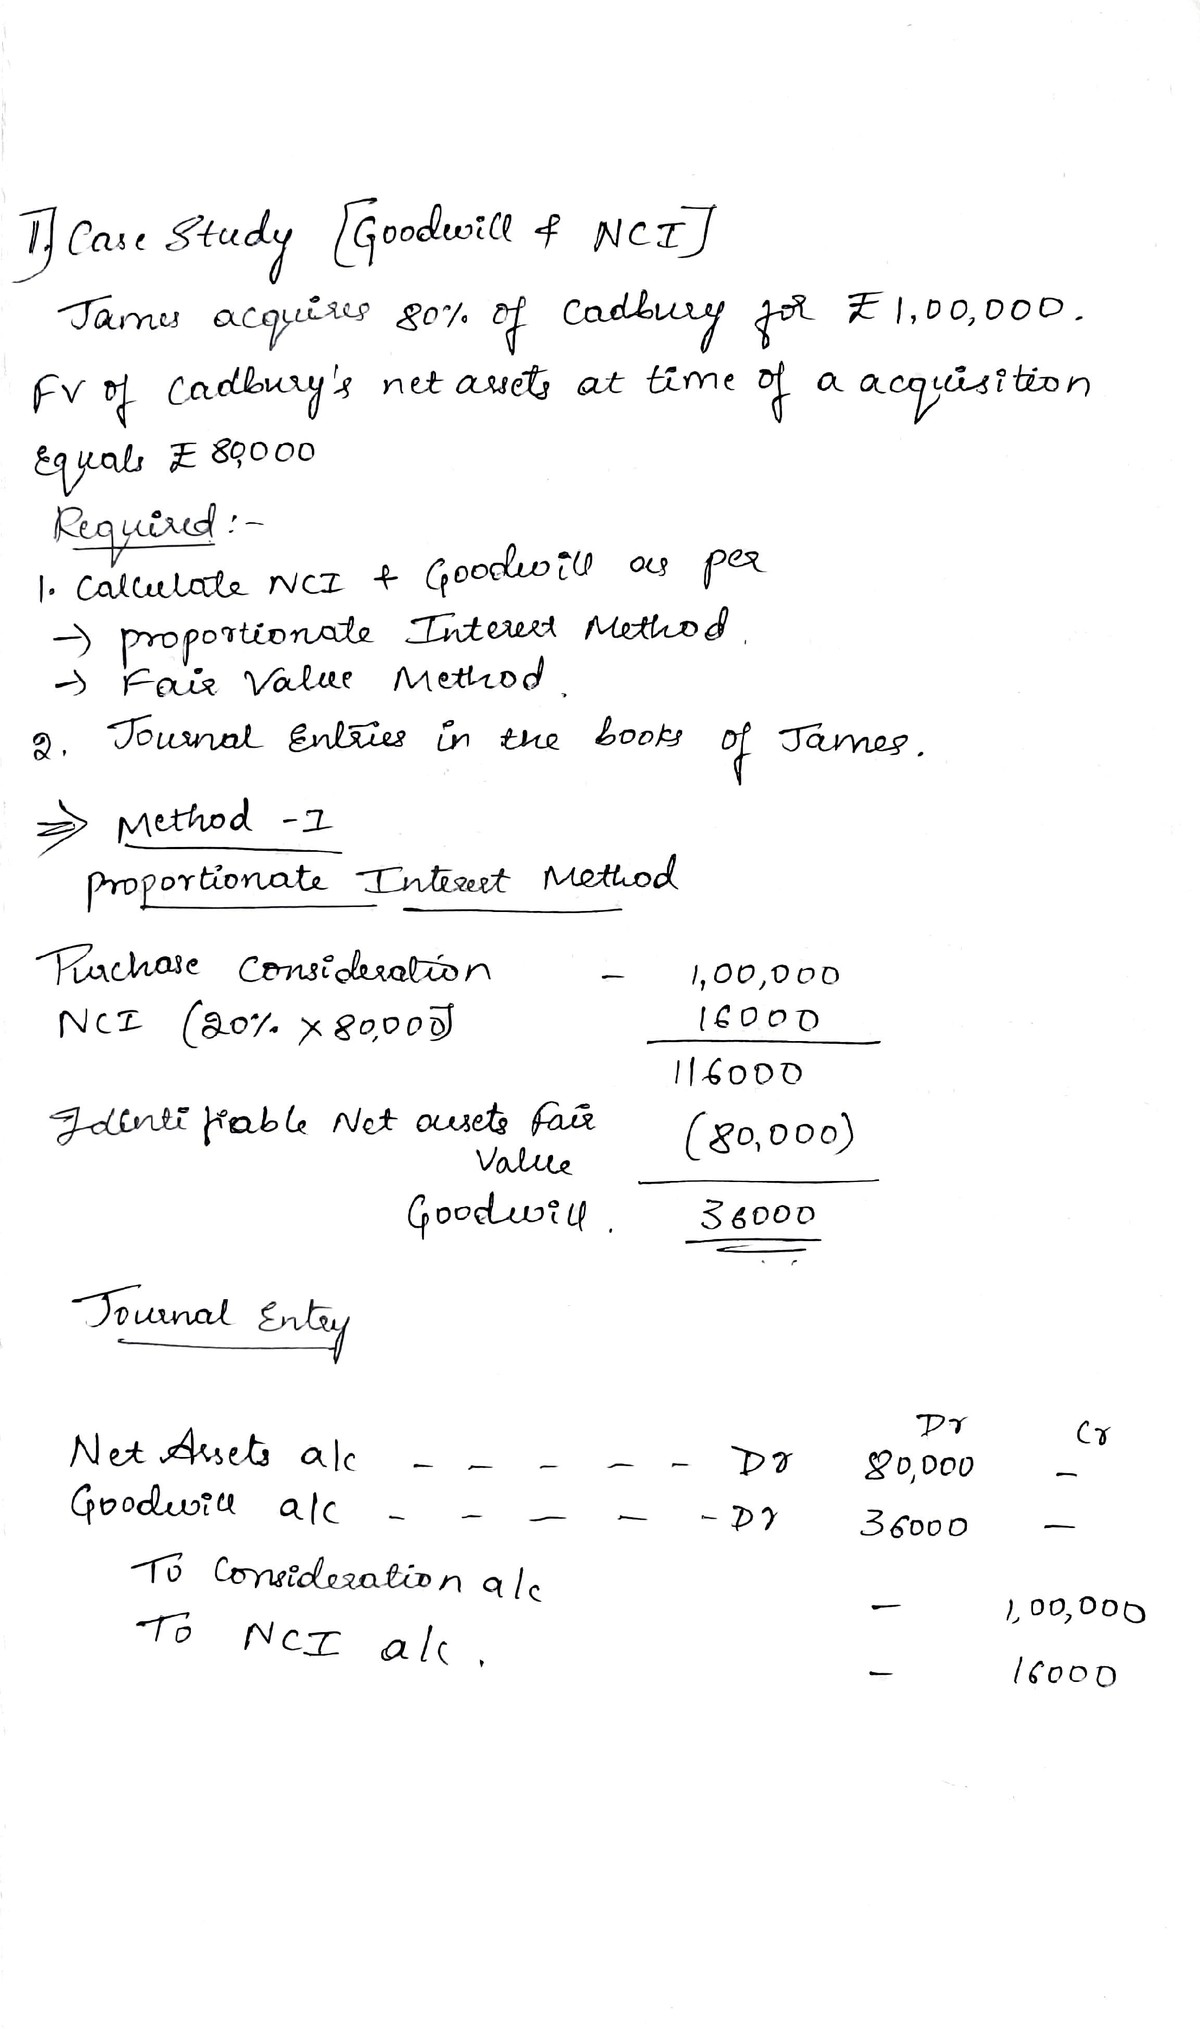 1] Case Study [Goodwill & NCI]
James acquires 80% of Cadbury for ₤ 1,00,000.
FV of Cadbury's net assets at time of a acquisition
Equals ₤ 80,000
Required :-
1. Calculate NCI & Goodwill as per
→ proportionate Interest Method.
→ Fair Value Method.
2. Journal Entries in the books of James.
⇒ Method - I
proportionate Interest Method
Purchase Consideration - 1,00,000
NCI (20% × 80,000] 16000
116000
Identifiable Net assets fair (80,000)
Value
Goodwill. 36000
Journal Entry
Dr Cr
Net Assets a/c - - - - - Dr 80,000 -
Goodwill a/c - - - - - Dr 36000 -
To Consideration a/c - 1,00,000
To NCI a/c. - 16000